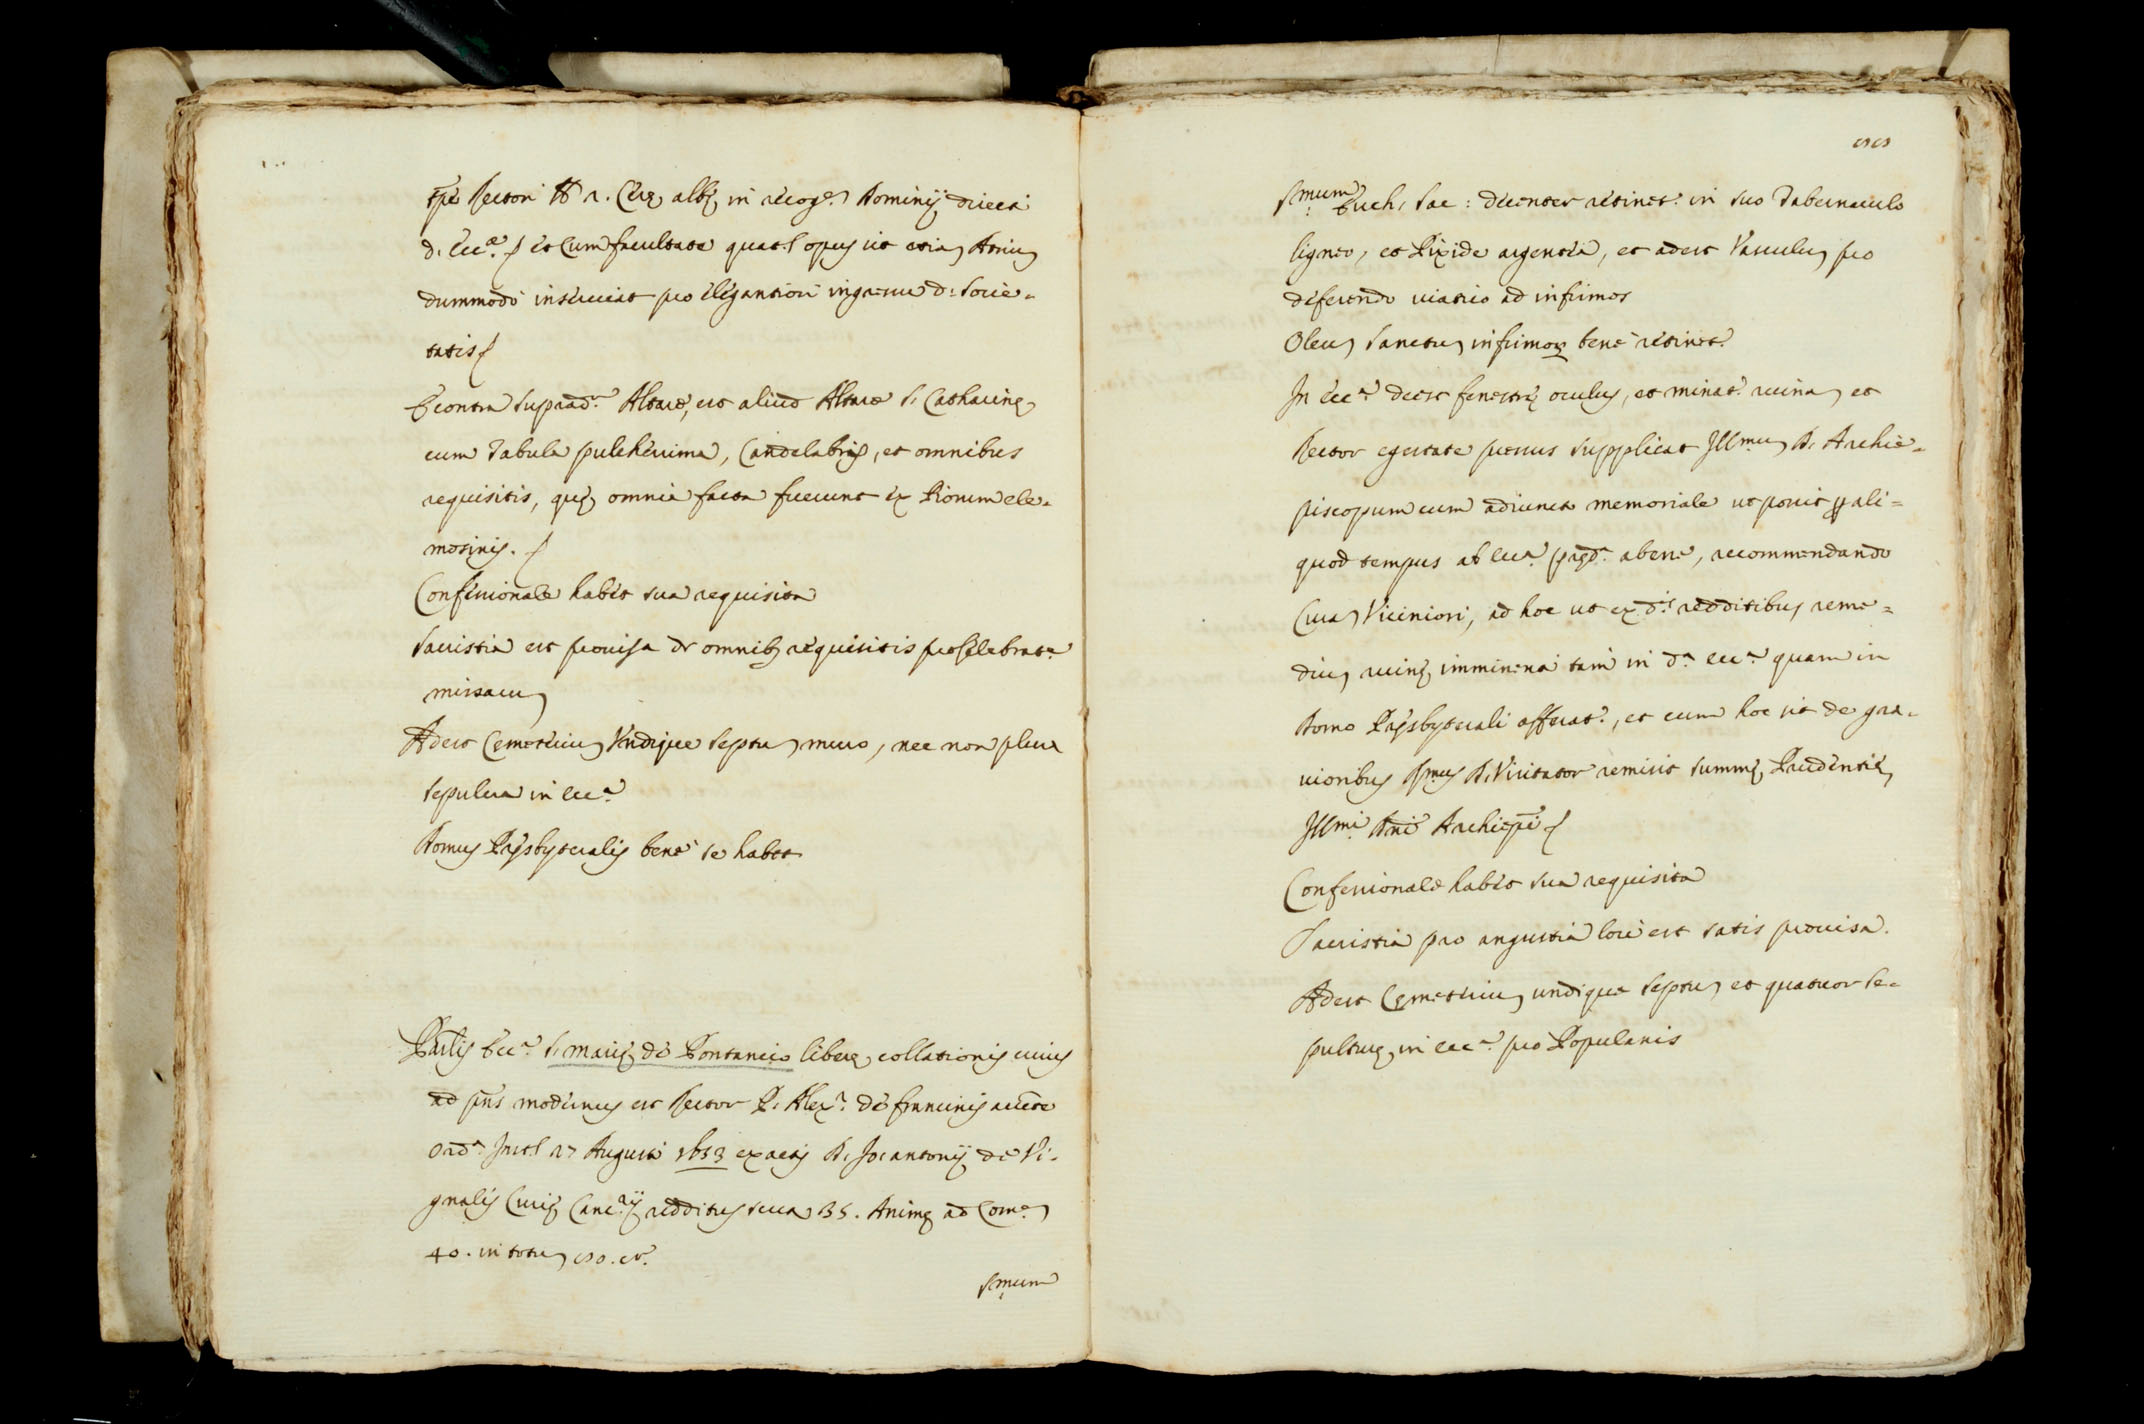 tpē Rectori lb 2. Cerę albę in recog.e Dominij directi
d. Ecc.æ et cum facultate quat.s opus sit etiam Atrium
dummodo inserviat pro elegantiori ingressu d. Socie-
tatis
E contra suprad.m Altare, est aliud Altare S. Catharinę
cum Tabula pulcherrima, Candelabris, et omnibus
requisitis, quę omnia facta fuerunt ex Piorum ele-
mosinis.
Confessionale habet sua requisita
Sacristia est provisa de omnibus requisitis pro celebrat.e
missarum
Adest Cemeterium Undique septum muro, nec non plura
sepulcra in ecc.a
Domus Pręsbyteralis bene se habet
Par.lis Ecc.a S. Marię de Pontancio liberę collationis cuius
ad pn̄s modernus est Rector P. Alex.r de Francinis auc.te
ord.a Inst.s 27 Augusti 1653 ex actis D. Jo: Antonij de Vi-
gnalis Curię Canc.rij redditus scuta 35. Animę ad Com.em
40. in totum
S.mum
S.mum Euch. Sac: decenter retinet.r in suo Tabernaculo
ligneo, et Pixide argentea, et adest Vasculum pro
deferendo viatico ad infirmos
Oleum Sanctum infirmorum bene retinet.r
In ecc.a deest fenestrę oculus, et minat.r ruinam et
Rector egestate pressus supplicat Ill.mum D. Archie-
piscopum cum adiuncto memoriale ut possit p ali-
quod tempus ab ecc.a pręd.a abesse, recommendando
Curam Viciniori, ad hoc ut ex d.is redditibus reme-
dium ruinę imminenti tam in d.a ecc.a quam in
Domo Pręsbyterali afferat.r, et cum hoc sit de gra-
vioribus R.mus D. Visitator remisit summę Prudentię
Ill.mi Dn̄i Archiep̄i
Confessionale habet sua requisita
Sacristia pro angustia loci est satis provisa.
Adest Cęmeterium undique septum et quatuor se-
pulturę in ecc.a pro Popularis